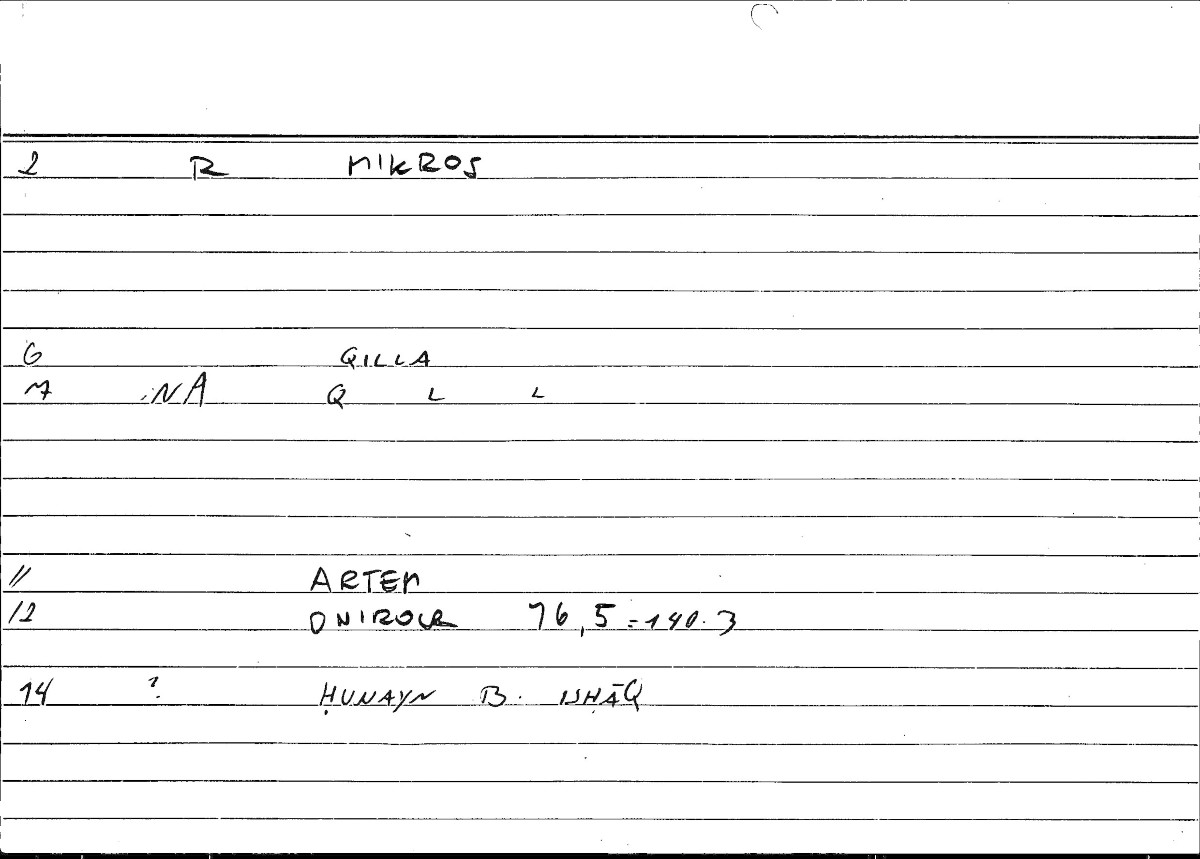 2 R MIKROS
6 QILLA
7 NA Q L L
11 ARTEM
12 ONIROCR 76,5 = 140.3
14 ? ḤUNAYN B. ISḤĀQ